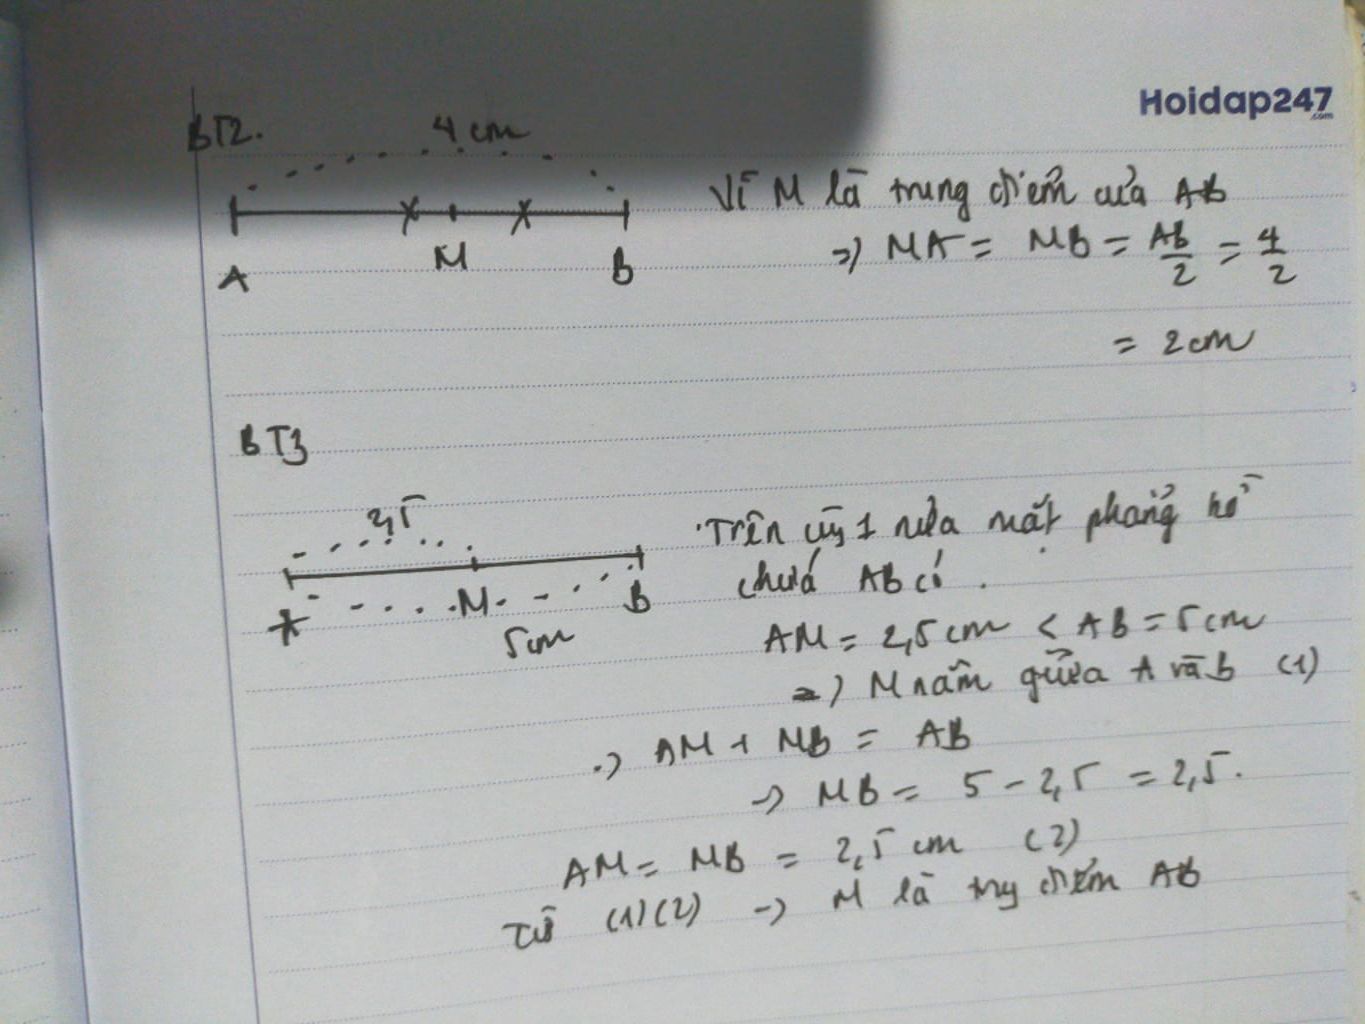 Hoidap247
.com
BT2.
4 cm
A M B
Vì M là trung điểm của AB
=> MA = MB = AB/2 = 4/2
= 2cm
BT3
2,5
A M B
5cm
Trên cùng 1 nửa mặt phẳng bờ
chứa AB có.
AM = 2,5 cm < AB = 5 cm
=> M nằm giữa A và B (1)
=> AM + MB = AB
=> MB = 5 - 2,5 = 2,5.
AM = MB = 2,5 cm (2)
Từ (1)(2) => M là trung điểm AB